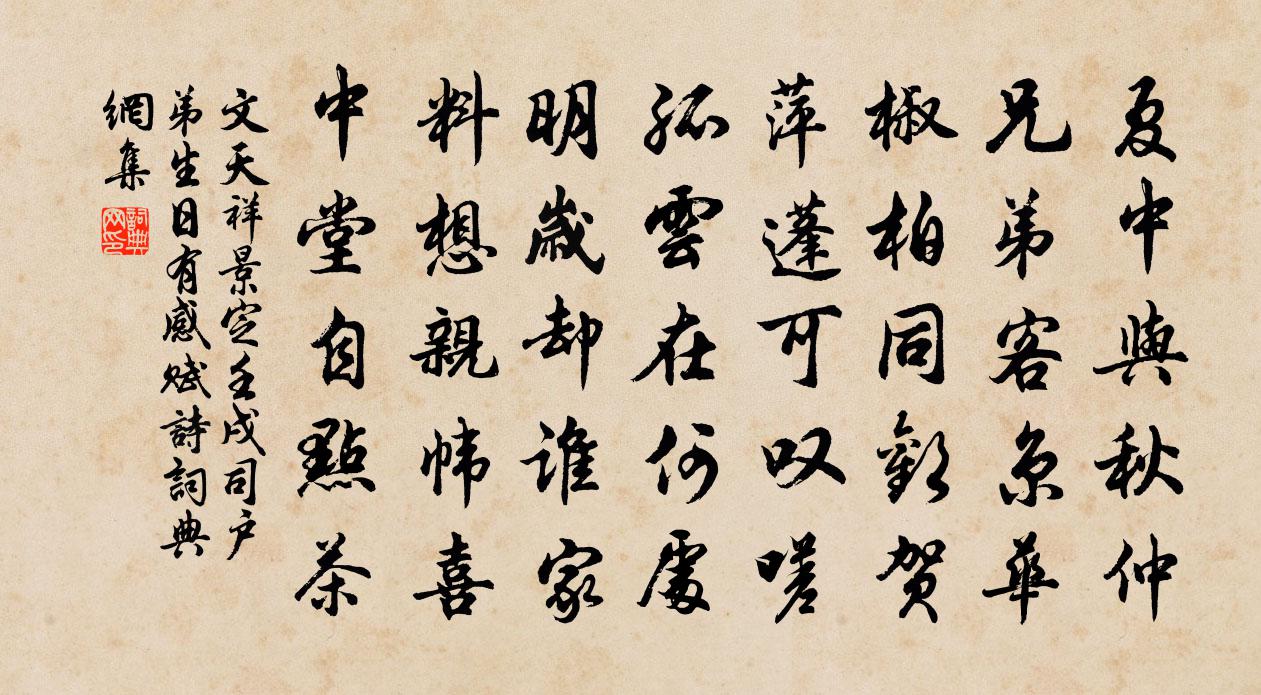 夏中與秋仲
兄弟客京華
椒柏同歡賀
萍蓬可叹嗟
孤雲在何處
明歲却誰家
料想親幃喜
中堂自點茶
文天祥景定壬戌司户
弟生日有感赋詩詞典
網集
詞典网印